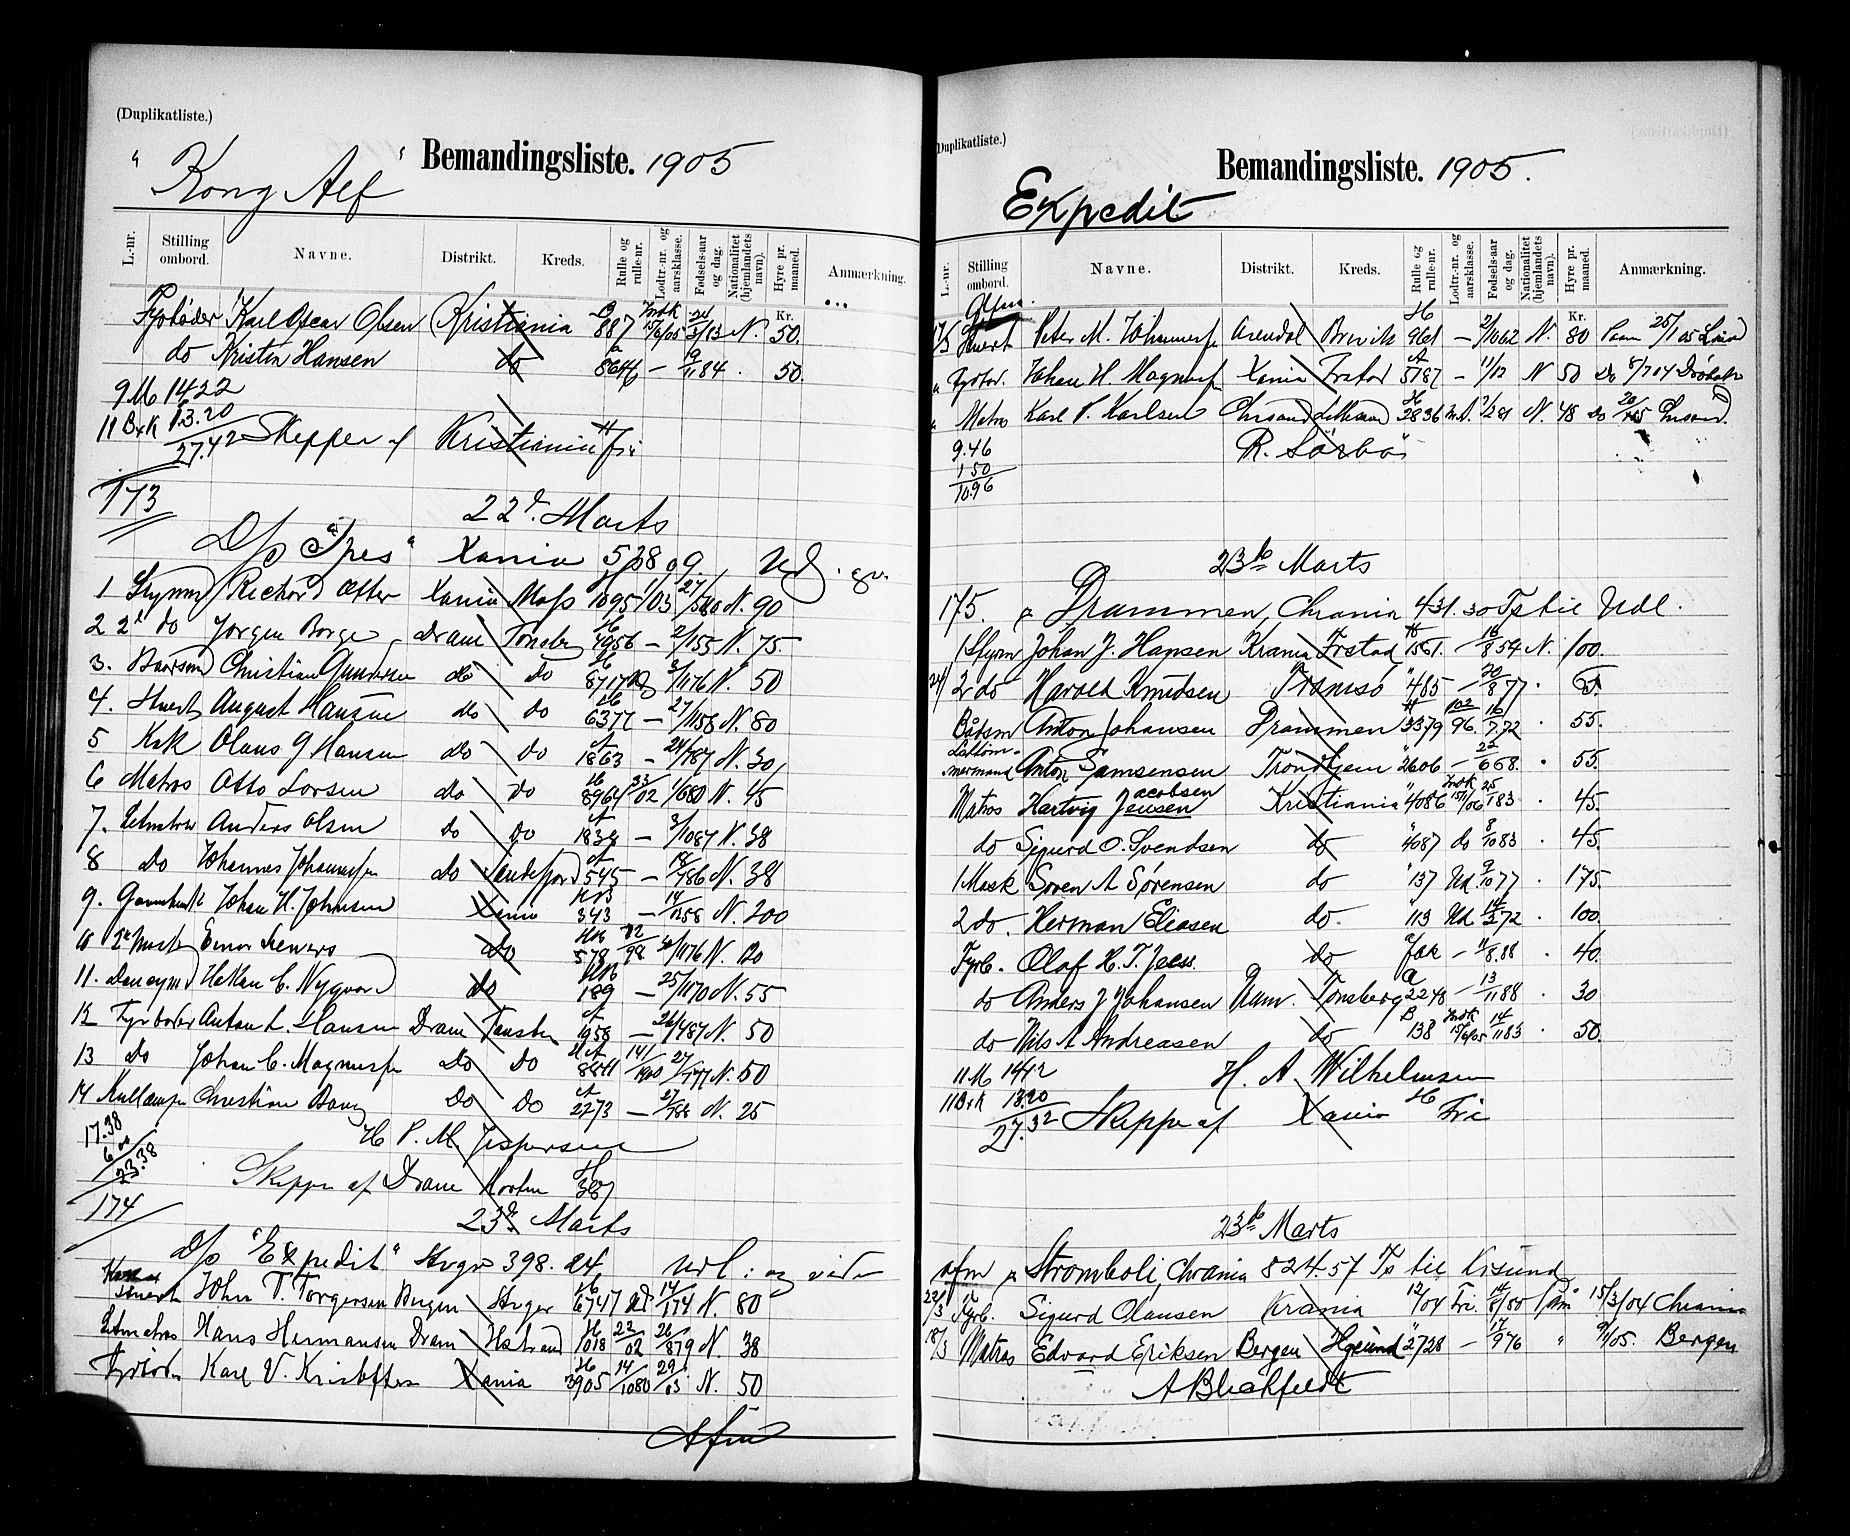 (Duplikatliste.)
Bemandingsliste. 1905
"Kong Alf"
L.-nr. Stilling ombord. Navne. Distrikt. Kreds. Rulle og rulle-nr. Lodtr.-nr. og aarsklasse. Fødsels-aar og dag. Nationalitet (hjemlandets navn). Hyre pr. maaned. Anmærkning.
Kr.
Fyrbøder Karl Oscar Olsen Kristiania 887 Indk 15/6/05 24/3/83 N. 50.
do Kristin Hansen do 8646 — 9/11 84 . 50.
9 M 14.22
11 BxK 13.20
27.42 Skipper af Kristiania H fri
173
22d. Marts
D/s "Spes" Xania 538 09. Udl. ov.
1 Styrmd Richard Otter Xania Moss 1095 1/03 27/580 N. 90
2 2d do Jørgen Borge Dram Tønsbg 4956 — 2/155 N. 75.
3. Baasmd Christian Gundersen do do 8717 Ud 3/1176 N. 50
4. Stuert August Hansen do do 6377 — 27/1158 N. 80
5 Kok Olaus G Hansen do do 1863 — 24/787 N. 30
6 Matros Otto Larsen do do 8964 33/02 1/680 N. 45
7. Letmatros Anders Olsen do do 1839 — 3/1087 N. 38
8 do Johannes Johannessen do Sandefjord 545 — 12/786 N. 38
9. Johan H. Johnsen Xania 343 — 14/1258 N. 200
10 2d Mast Einar Siewers do 578 72/98 30/1176 N. 120
11. Donkeymd Hakon C. Nygaard do 189 — 25/1170 N. 55
12 Fyrbøder Anton L. Hansen Dram Tønsbg 1958 — 26/487 N. 50
13 do Johan C. Magnussen do do 8841 141/1900 27/177 N. 50
14 Kullemper Christian Baug do do 2273 — 27/788 N. 25
17.38
6.00
23.38
H P. M. Jespersen
Skipper af Dram Horten H 387
174
23d. Marts
D/s "Expedit" Stvgr 398. 24 Udl: og videre
Stuert John T. Torgersen Bergen Stvger 6747 Ud 14/174 N. 80
Letmatros Hans Hermansen Dram Hstrand 1018 23/02 26/879 N. 38
Fyrbøder Karl V. Kristoffersen Xania 3905 14/1080 29/03 N. 50
Afm
(Duplikatliste.)
Bemandingsliste. 1905.
Expedit
L.-nr. Stilling ombord. Navne. Distrikt. Kreds. Rulle og rulle-nr. Lodtr.-nr. og aarsklasse. Fødsels-aar og dag. Nationalitet (hjemlandets navn). Hyre pr. maaned. Anmærkning.
Afm. Kr.
17/3 Stuert Peter M. Johannessen Arendal Brevik H 961 — 2/1062 N. 80 Paam 25/1 05
" Fyrbød. Johan H. Magnussen Xania Frstad A 5787 — 11/12 N 50 do 8/7 04 Drøbak
" Matros Karl P. Karlsen Chrsand H 2836 7/281 N. 48 do Chrsand.
9.46
1 50
10.96
R. Sørbø
23de Marts
175. D/s Drammen, Chrania 431.30 Ts til Udl.
1 Styrm Johan J. Hansen Krania Frstad H 1561. — 16/8 54 N. 100.
24/ 2 do Harald Knudsen Tromsø " 485 — 20/8 77 . 65.
Båtsm Anton Johansen Drammen H 3379 102/96. 16/7 72 . 55.
mermand Anton Samsensen Trondhjem " 2606 — 22/6 68. . 55.
Matros Hartvig Jensen Jacobsen Kristiania " 4086 Indk 15/11/06 25/1 83 . 45.
do Sigurd O. Svendsen do " 4087 do 8/10 83 . 45.
1 Mask Søren A Sørensen do " 137 Ud 9/10 77 . 175.
2 do. Herman Eliasen do. " 113 Ud 14/3 72 . 100.
Fyrb. Olaf H. T. Jess. do — 11/8 88 . 40.
do Anders J Johansen Dram. Tønsberg a 2248 — 13/11 88 . 30
do Nils A Andreasen do B 138 Indk 15/6/05 14/11 83 . 50.
11 M 14.12
11 BxK 13.20
27.32
H. A. Wilhelmsen
Skipper af Xania H Fri
23de Marts
afm D/s Stromboli, Chrania 824.57 Ts til Krsund
23/3 Fyrb. Sigurd Olausen Krania 12/04 Fri. 14/8/80 Påm 15/3/04 Chrania
18/3 Matros Edvard Eriksen Bergen Hgsund " 2728 — 17/9 76 " 9/1/05. Bergen
A Blichfeldt